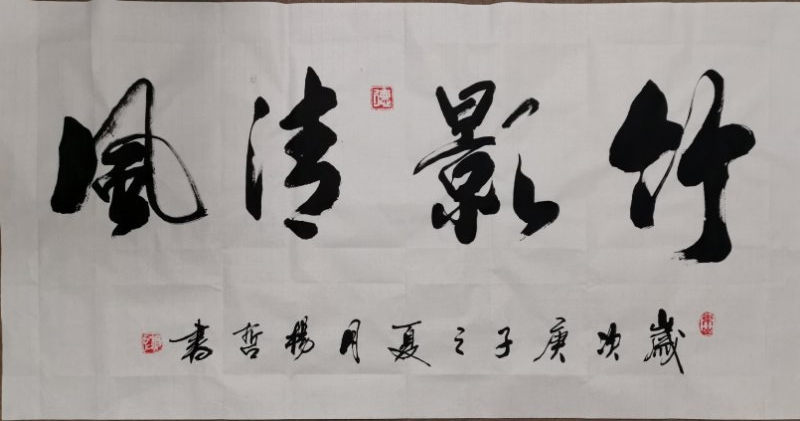 竹影清风
歲次庚子之夏月楊哲書
德